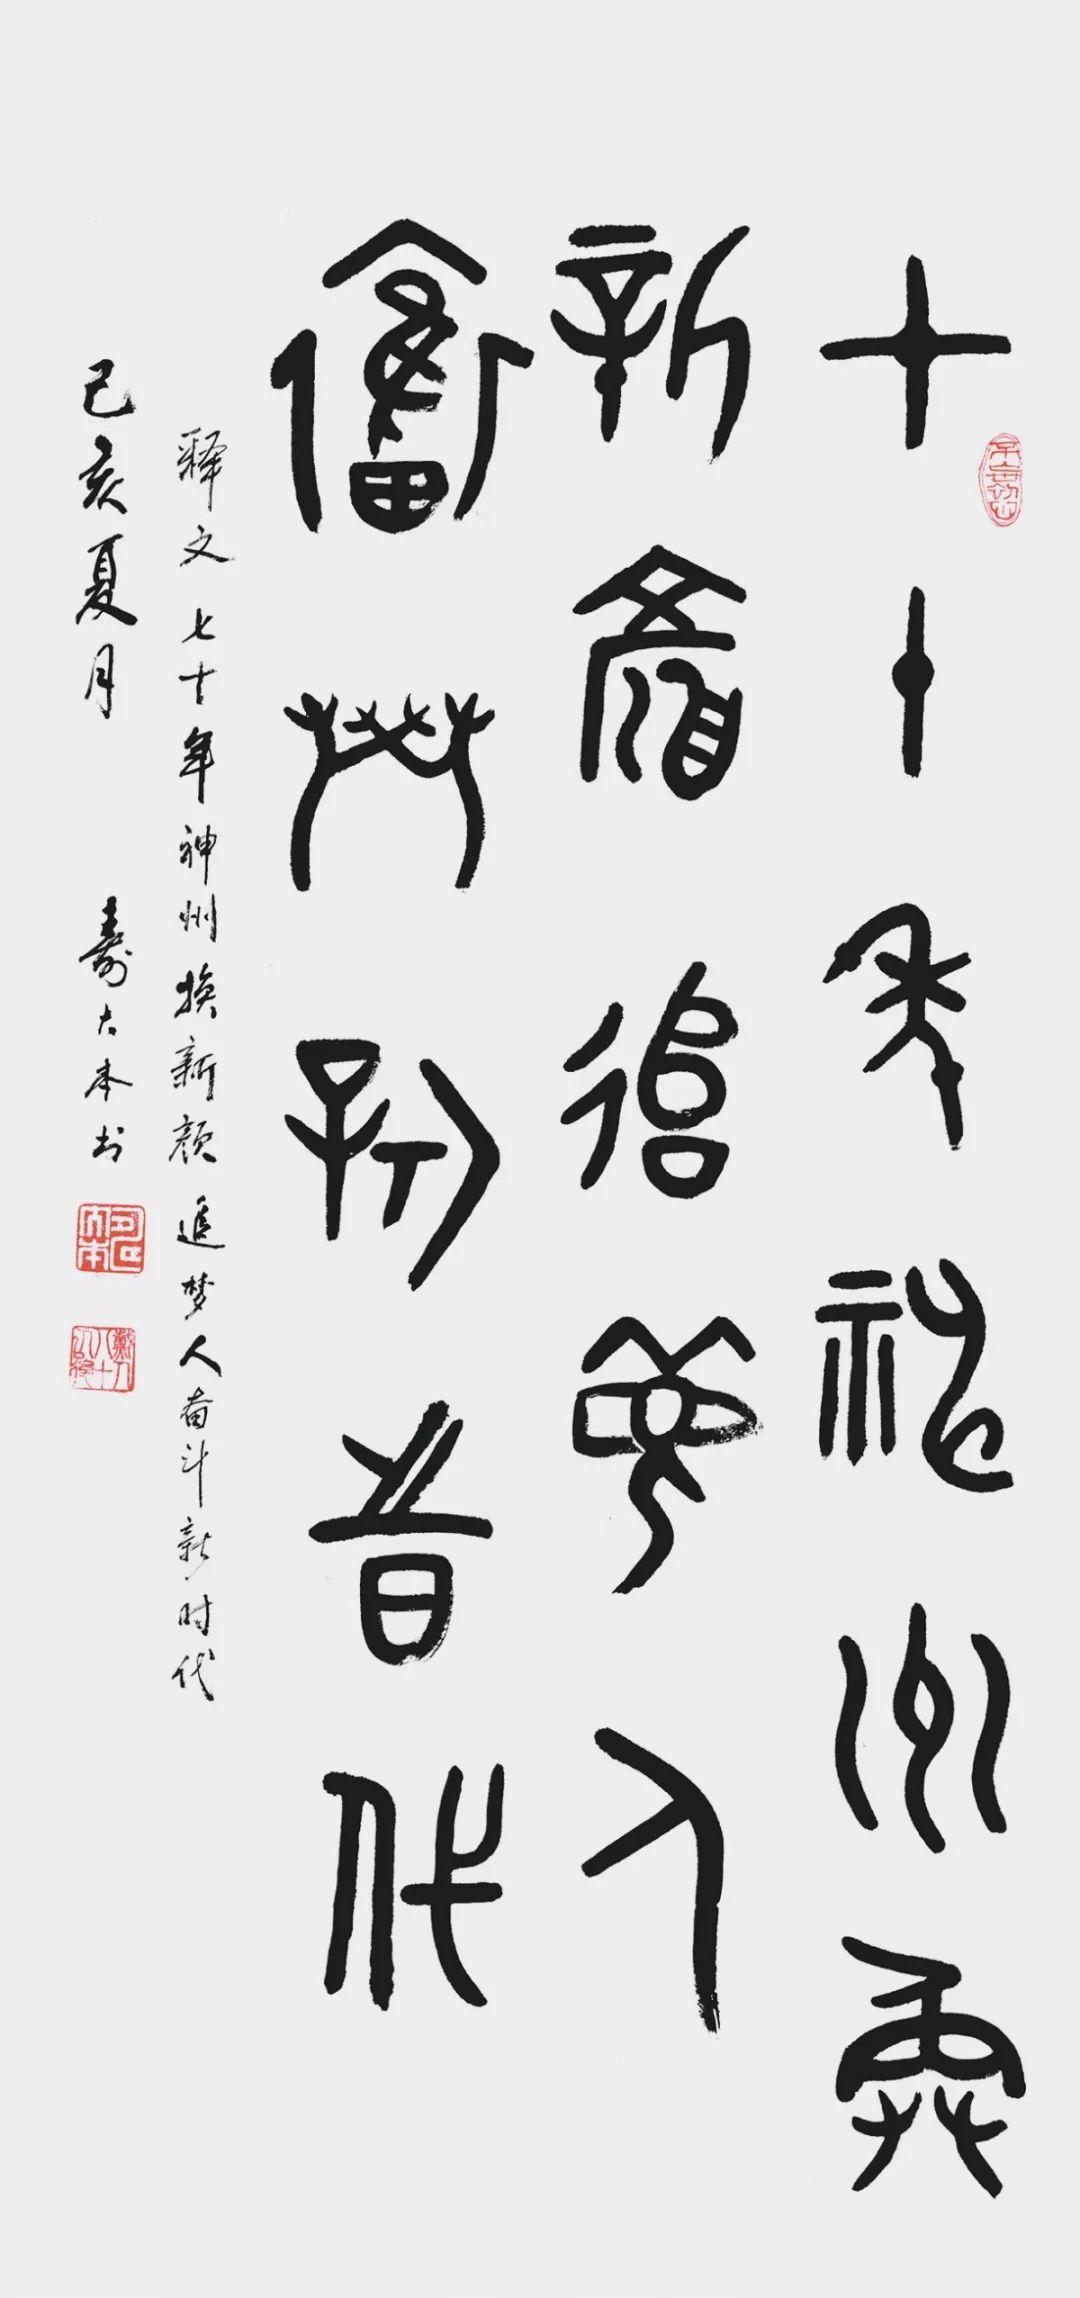 七十年神州换
新颜追梦人
奋斗新时代
释文 七十年神州换新颜 追梦人奋斗新时代
己亥夏月 寿大本书